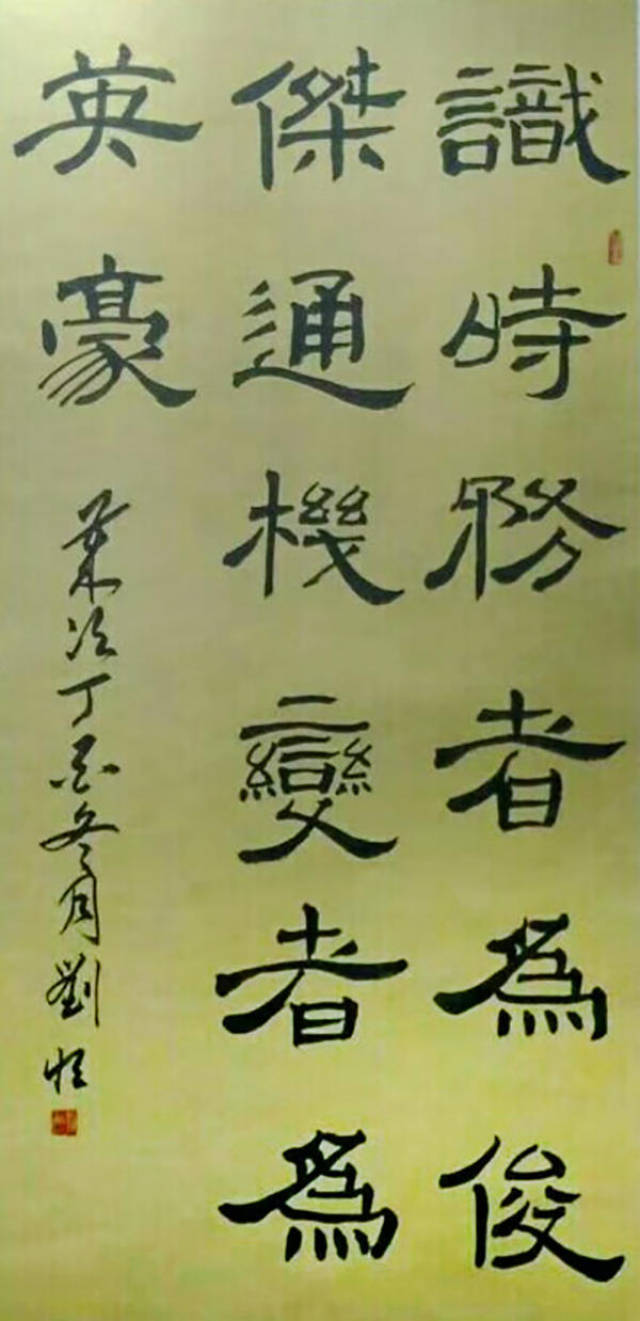 識時務者為俊
傑通機變者為
英豪
歲次丁酉冬月劉恒